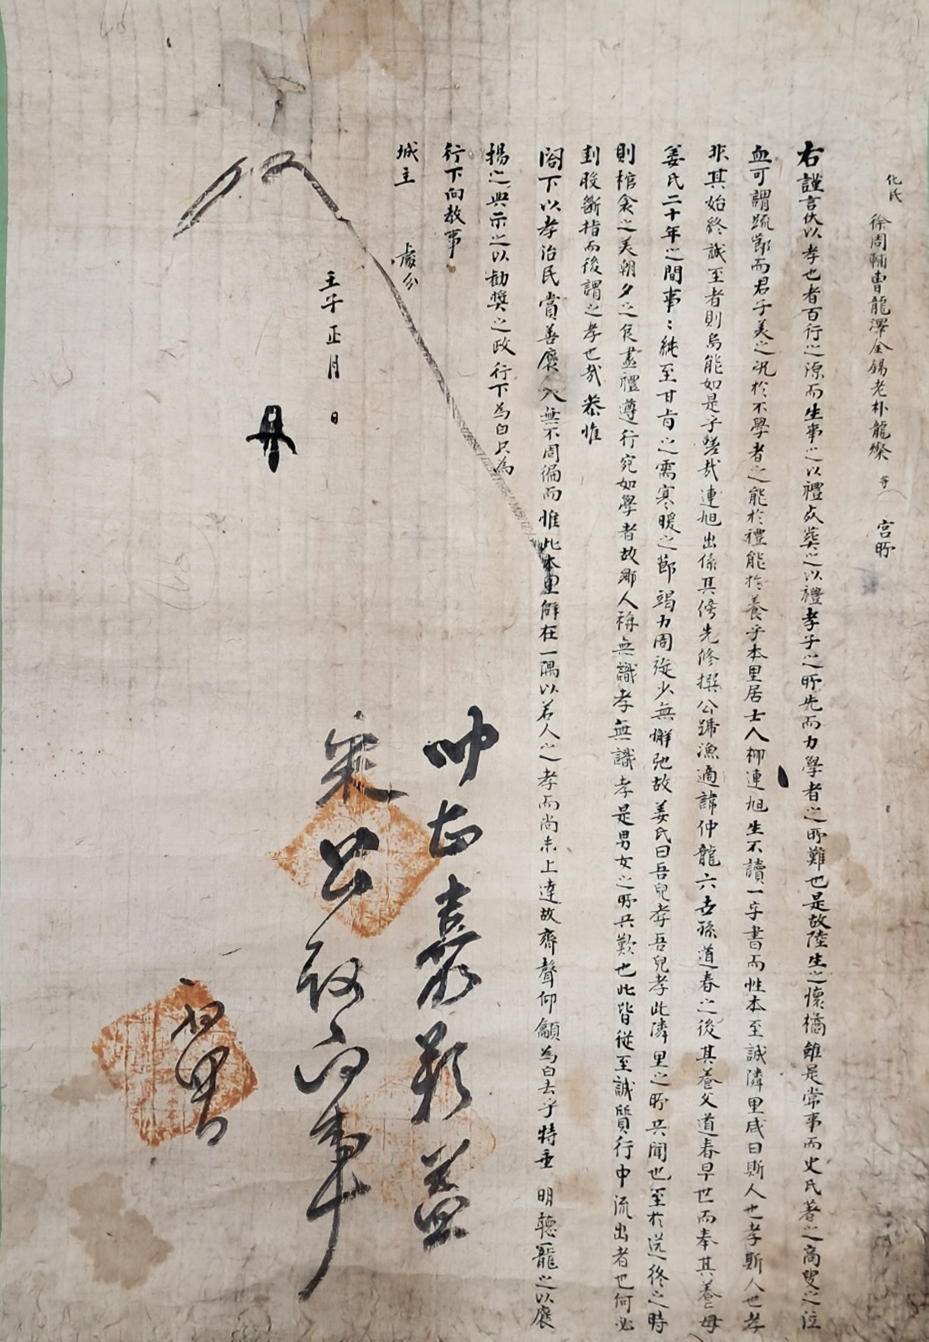 化民 徐周輔曺龍澤金錫老朴龍燦 等 宮所
右謹言伏以孝也者百行之源而生事之以禮死葬之以禮孝子之所先而力學者之所難也是故陸生之懷橘雖是常事而史氏著之高叟之泣
血可謂疏節而君子美之況於不學者之能於禮能於養乎本里居士人柳連旭生不讀一字書而性本至誠隣里咸曰斯人也孝斯人也孝
非其始終誠至者則烏能如是乎蹩哉連旭出係其傍先修撰公號漁適諱仲龍六世孫道春之後其養父道春早世而奉其養母
姜氏二十年之間事〻純至甘旨之需寒暖之節竭力周旋少無懈弛故姜氏曰吾兒孝吾兒孝此隣里之所共聞也至於送終之時
則棺衾之美朝夕之食盡禮遵行宛如學者故鄉人稱無識孝無識孝是男女之所共歎也此皆從至誠質行中流出者也何必
刲股斷指而後謂之孝也哉恭惟
閤下以孝治民賞善褒人無不周徧而惟此本里僻在一隅以若人之孝而尚未上達故齊聲仰籲爲白去乎特垂 明聽寵之以褒
揚之典示之以勸奬之政行下爲白只爲
行下向敎事
城主 處分
壬子 正月 日
嘉歎益
采公 向事